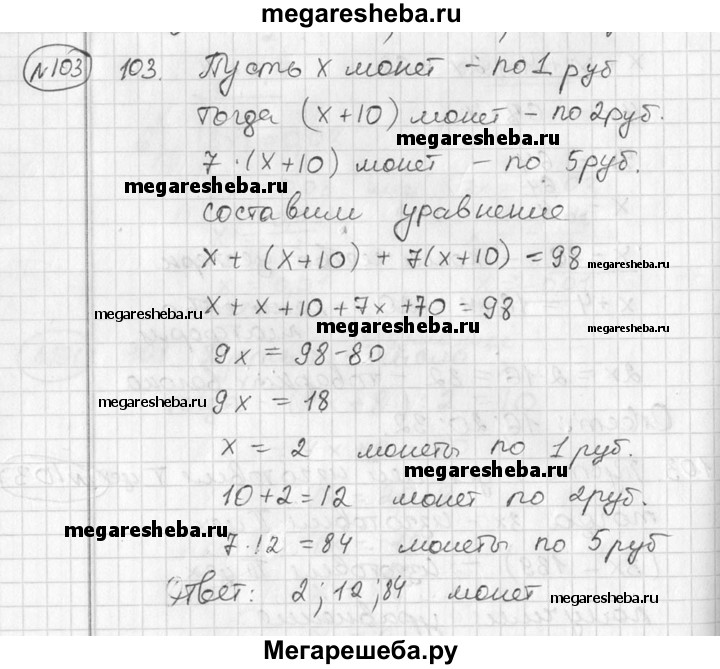 megaresheba.ru
№103 103. Пусть x монет – по 1 руб
тогда (x+10) монет – по 2руб.
megaresheba.ru
7·(x+10) монет – по 5руб.
megaresheba.ru
составим уравнение
x + (x+10) + 7(x+10) = 98 megaresheba.ru
megaresheba.ru x + x + 10 + 7x + 70 = 98
megaresheba.ru megaresheba.ru
9x = 98-80
megaresheba.ru 9x = 18
x = 2 монеты по 1 руб.
megaresheba.ru
10+2=12 монет по 2руб.
megaresheba.ru
7·12 = 84 монеты по 5 руб
Ответ: 2; 12; 84 монет
megaresheba.ru
Мегарешеба.ру